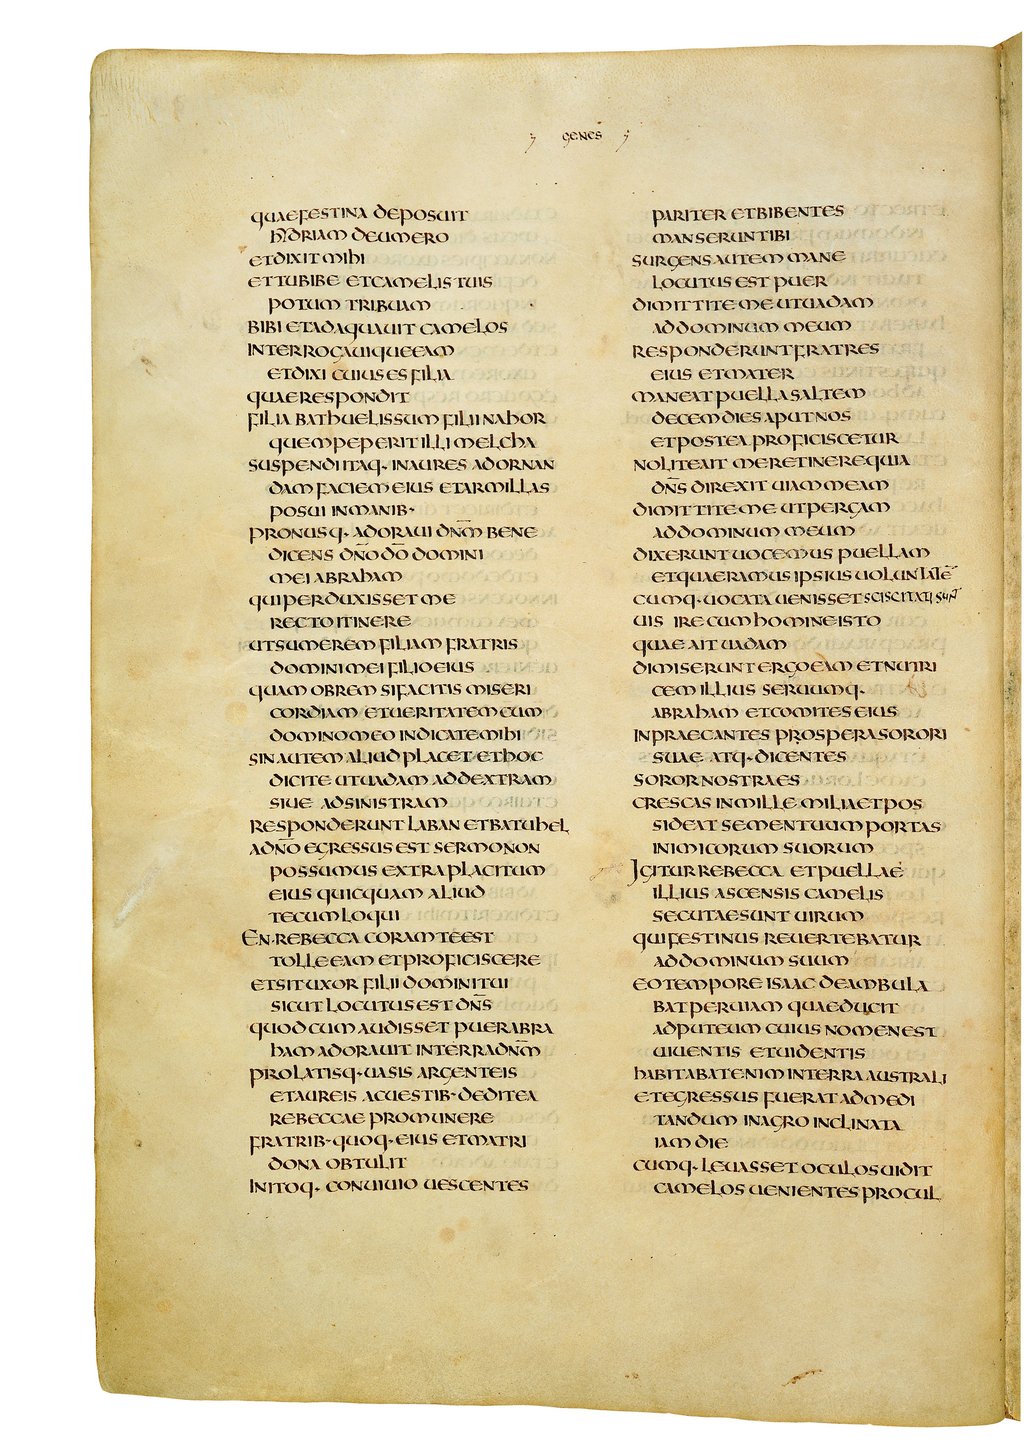 GENES̄
QUAE FESTINA DEPOSUIT
HYDRIAM DE UMERO
ET DIXIT MIHI
ET TU BIBE ET CAMELIS TUIS
POTUM TRIBUAM
BIBI ET ADAQUAUIT CAMELOS
INTERROGAUIQUE EAM
ET DIXI CUIUS ES FILIA
QUAE RESPONDIT
FILIA BATHUELIS SUM FILII NAHOR
QUEM PEPERIT ILLI MELCHA
SUSPENDI ITAQ· INAURES ADORNAN
DAM FACIEM EIUS ET ARMILLAS
POSUI IN MANIB·
PRONUSQ· ADORAUI DN̄M BENE
DICENS DN̄O DŌ DOMINI
MEI ABRAHAM
QUI PERDUXISSET ME
RECTO ITINERE
UT SUMEREM FILIAM FRATRIS
DOMINI MEI FILIO EIUS
QUAM OBREM SI FACITIS MISERI
CORDIAM ET UERITATEM CUM
DOMINO MEO INDICATE MIHI
SIN AUTEM ALIUD PLACET ET HOC
DICITE UT UADAM AD DEXTRAM
SIUE AD SINISTRAM
RESPONDERUNT LABAN ET BATUHEL
A DN̄O EGRESSUS EST SERMO NON
POSSUMUS EXTRA PLACITUM
EIUS QUICQUAM ALIUD
TECUM LOQUI
EN·REBECCA CORAM TE EST
TOLLE EAM ET PROFICISCERE
ET SIT UXOR FILII DOMINI TUI
SICUT LOCUTUS EST DN̄S
QUOD CUM AUDISSET PUER ABRA
HAM ADORAUIT IN TERRA DN̄M
PROLATISQ· UASIS ARGENTEIS
ET AUREIS AC UESTIB· DEDIT EA
REBECCAE PRO MUNERE
FRATRIB· QUOQ· EIUS ET MATRI
DONA OBTULIT
INITOQ· CONUIUIO UESCENTES
PARITER ET BIBENTES
MANSERUNT IBI
SURGENS AUTEM MANE
LOCUTUS EST PUER
DIMITTITE ME UT UADAM
AD DOMINUM MEUM
RESPONDERUNT FRATRES
EIUS ET MATER
MANEAT PUELLA SALTEM
DECEM DIES APUT NOS
ET POSTEA PROFICISCETUR
NOLITE AIT ME RETINERE QUIA
DN̄S DIREXIT UIAM MEAM
DIMITTITE ME UT PERGAM
AD DOMINUM MEUM
DIXERUNT UOCEMUS PUELLAM
ET QUAERAMUS IPSIUS UOLUNTATĒ
CUMQ· UOCATA UENISSET SCISCITATI SUN̄
UIS IRE CUM HOMINE ISTO
QUAE AIT UADAM
DIMISERUNT ERGO EAM ET NUTRI
CEM ILLIUS SERUUMQ·
ABRAHAM ET COMITES EIUS
INPRAECANTES PROSPERA SORORI
SUAE ATQ· DICENTES
SOROR NOSTRA ES
CRESCAS IN MILLE MILIA ET POS
SIDEAT SEMEN TUUM PORTAS
INIMICORUM SUORUM
IGITUR REBECCA ET PUELLAE
ILLIUS ASCENSIS CAMELIS
SECUTAE SUNT UIRUM
QUI FESTINUS REUERTEBATUR
AD DOMINUM SUUM
EO TEMPORE ISAAC DEAMBULA
BAT PER UIAM QUAE DUCIT
AD PUTEUM CUIUS NOMEN EST
UIUENTIS ET UIDENTIS
HABITABAT ENIM IN TERRA AUSTRALI
ET EGRESSUS FUERAT AD MEDI
TANDUM IN AGRO INCLINATA
IAM DIE
CUMQ· LEUASSET OCULOS UIDIT
CAMELOS UENIENTES PROCUL